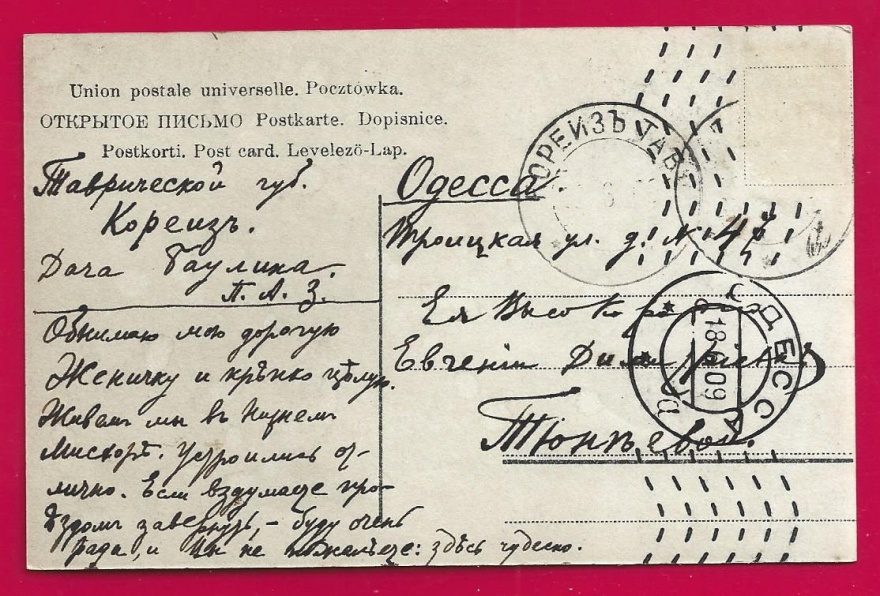 Union postale universelle. Pocztówka.
ОТКРЫТОЕ ПИСЬМО Postkarte. Dopisnice.
Postkorti. Post card. Levelező-Lap.
Таврической губ.
Кореизъ.
Дача Паулина.
П. А. З.
Обнимаю мою дорогую
Женичку и крѣпко цѣлую.
Живемъ мы въ Нижнемъ
Мисхорѣ. Устроились от-
лично. Если вздумаете про-
ѣздомъ завернуть, – буду очень
рада, и Вы не пожалѣете: здѣсь чудесно.
Одесса
Троицкая ул. д. № 47
Ея Высокородію
Евгеніи
Тюнѣевой.
КОРЕИЗЪ ТАВР
ОДЕССА
18 09